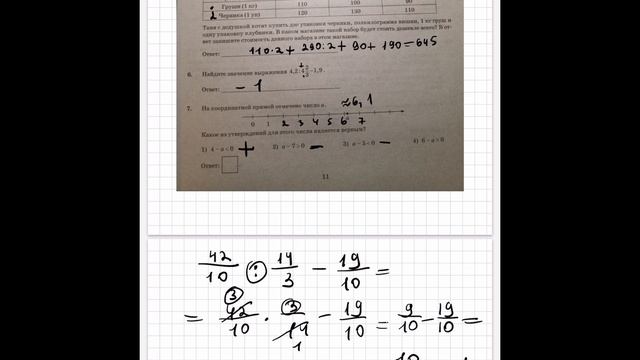 Груши (1 кг) 110 100 90
Черника (1 уп) 120 130 110
Таня с дедушкой хотят купить две упаковки черники, полкилограмма вишни, 1 кг груш и
одну упаковку клубники. В каком магазине такой набор будет стоить дешевле всего? В от-
вет запишите стоимость данного набора в этом магазине.
Ответ: 110·2+290:2+90+190=645
6. Найдите значение выражения 4,2:4 2/3 −1,9.
Ответ: −1
7. На координатной прямой отмечено число a.
≈6,1
0 1 2 3 4 5 6 7
Какое из утверждений для этого числа является верным?
1) 4−a<0 + 2) a−7>0 − 3) a−5<0 − 4) 6−a>0
Ответ:
11
42/10 : 14/3 − 19/10 =
3 3
= 42/10 · 3/14 − 19/10 = 9/10 − 19/10 =
1
10